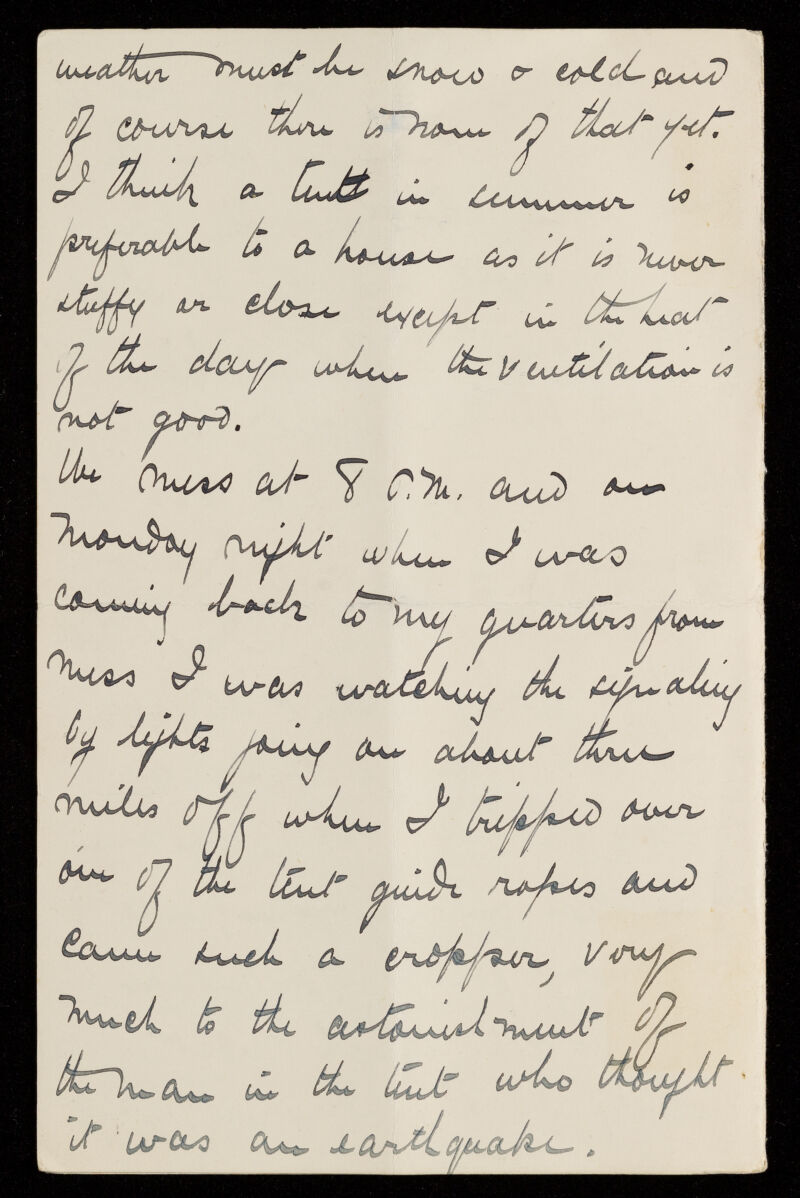 weather must be snow & cold and
of course there is none of that yet.
I think a tent in summer is
preferable to a house as it is never
stuffy or close except in the heat
of the day when the ventilation is
not good.
We mess at 8 P.M. and on
Monday night when I was
coming back to my quarters from
mess I was watching the signaling
by lights going on about three
miles off when I tripped over
one of the tent guide ropes and
came such a cropper, very
much to the astonishment of
the man in the tent who thought
it was an earthquake.